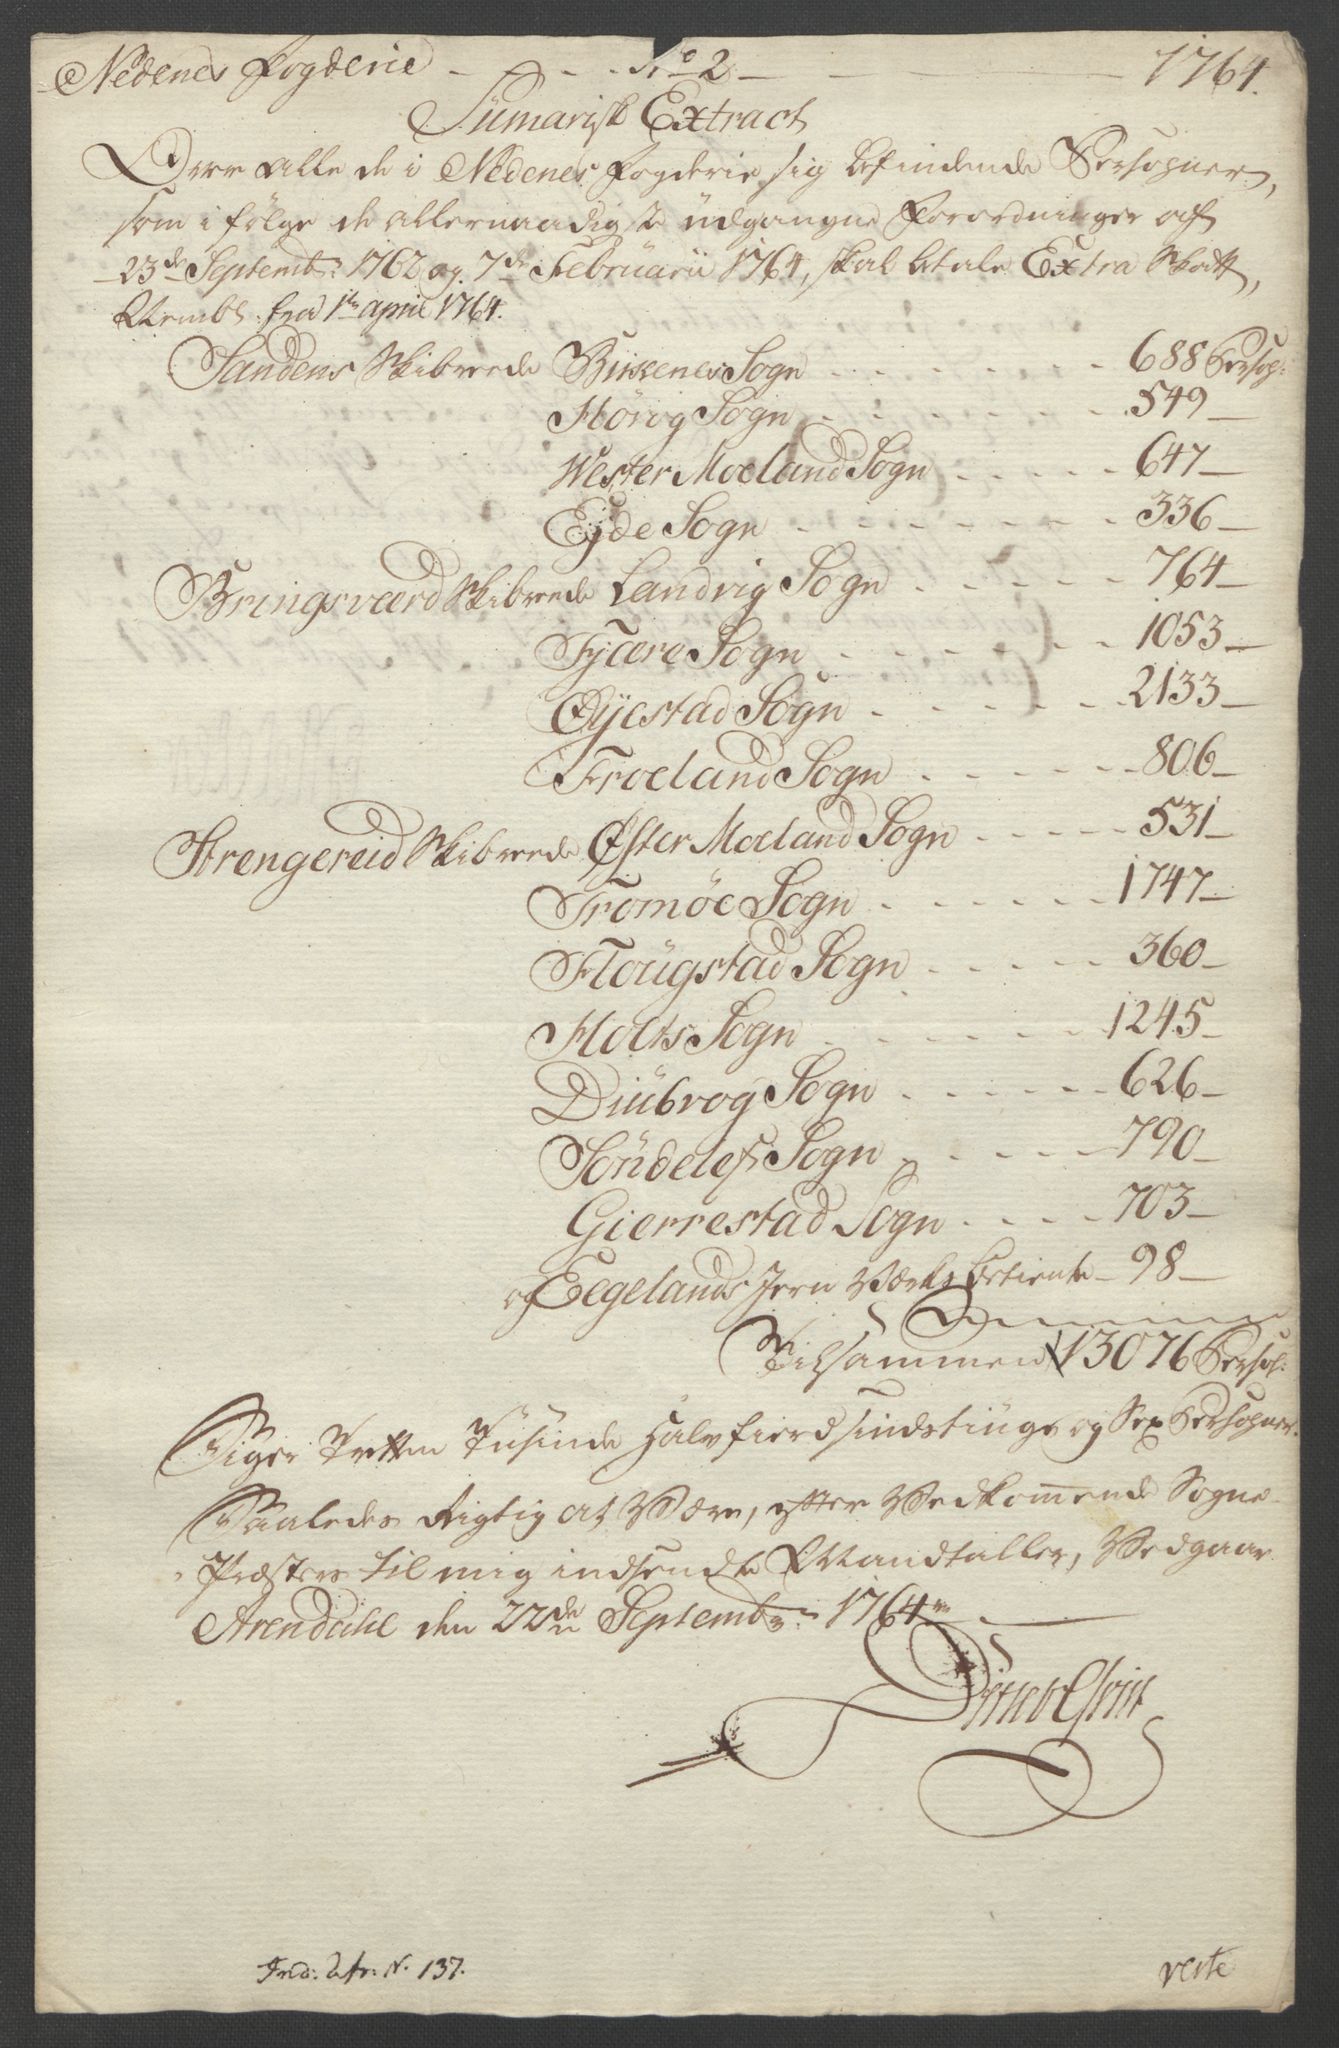 Nedenes Fogderie - - - No 2 - 1764.
Sumarisk Extract
Over alle de i Nedenes Fogderie sig befindende Persohner,
som i følge de allernaadigste udgangne Forordninger af
23de Septembr: 1762 og 7de Februarii 1764, skal betale Extra Skatt,
Nembl: fra 1te april 1764.
Sandens Skibrede Birkenes Sogn - - - 688 Persoh:
Høvog Sogn - - - 549 -
Wester Moeland Sogn - - - 647 -
Eyde Sogn - - - 336 -
Bringsværd Skibrede Landvig Sogn - - - 764 -
Fjære Sogn - - - 1053 -
Øyestad Sogn - - - 2133 -
Froeland Sogn - - - 806 -
Strengereid Skibrede Øster Moeland Sogn - - - 531 -
Tromøe Sogn - - - 1747 -
Flougstad Sogn - - - 360 -
Holts Sogn - - - 1245 -
Diubvog Sogn - - - 626 -
Søndelefs Sogn - - - 790 -
Gierrestad Sogn - - - 703 -
og Eegelands Jern Værks betiente - 98 -
Tilsammen 13076 Persoh:
Siger Tretten Tusinde Halvfierdsindstiuge og Sex Persohner.
Saaledes Rigtig at Være, efter Vedkommende Sogne-
Præsters til mig indsendte Mandtaller, Vedgaar
Arendahl den 22de Septembr: 1764
Ditlef
Ind: N. 137.
verte